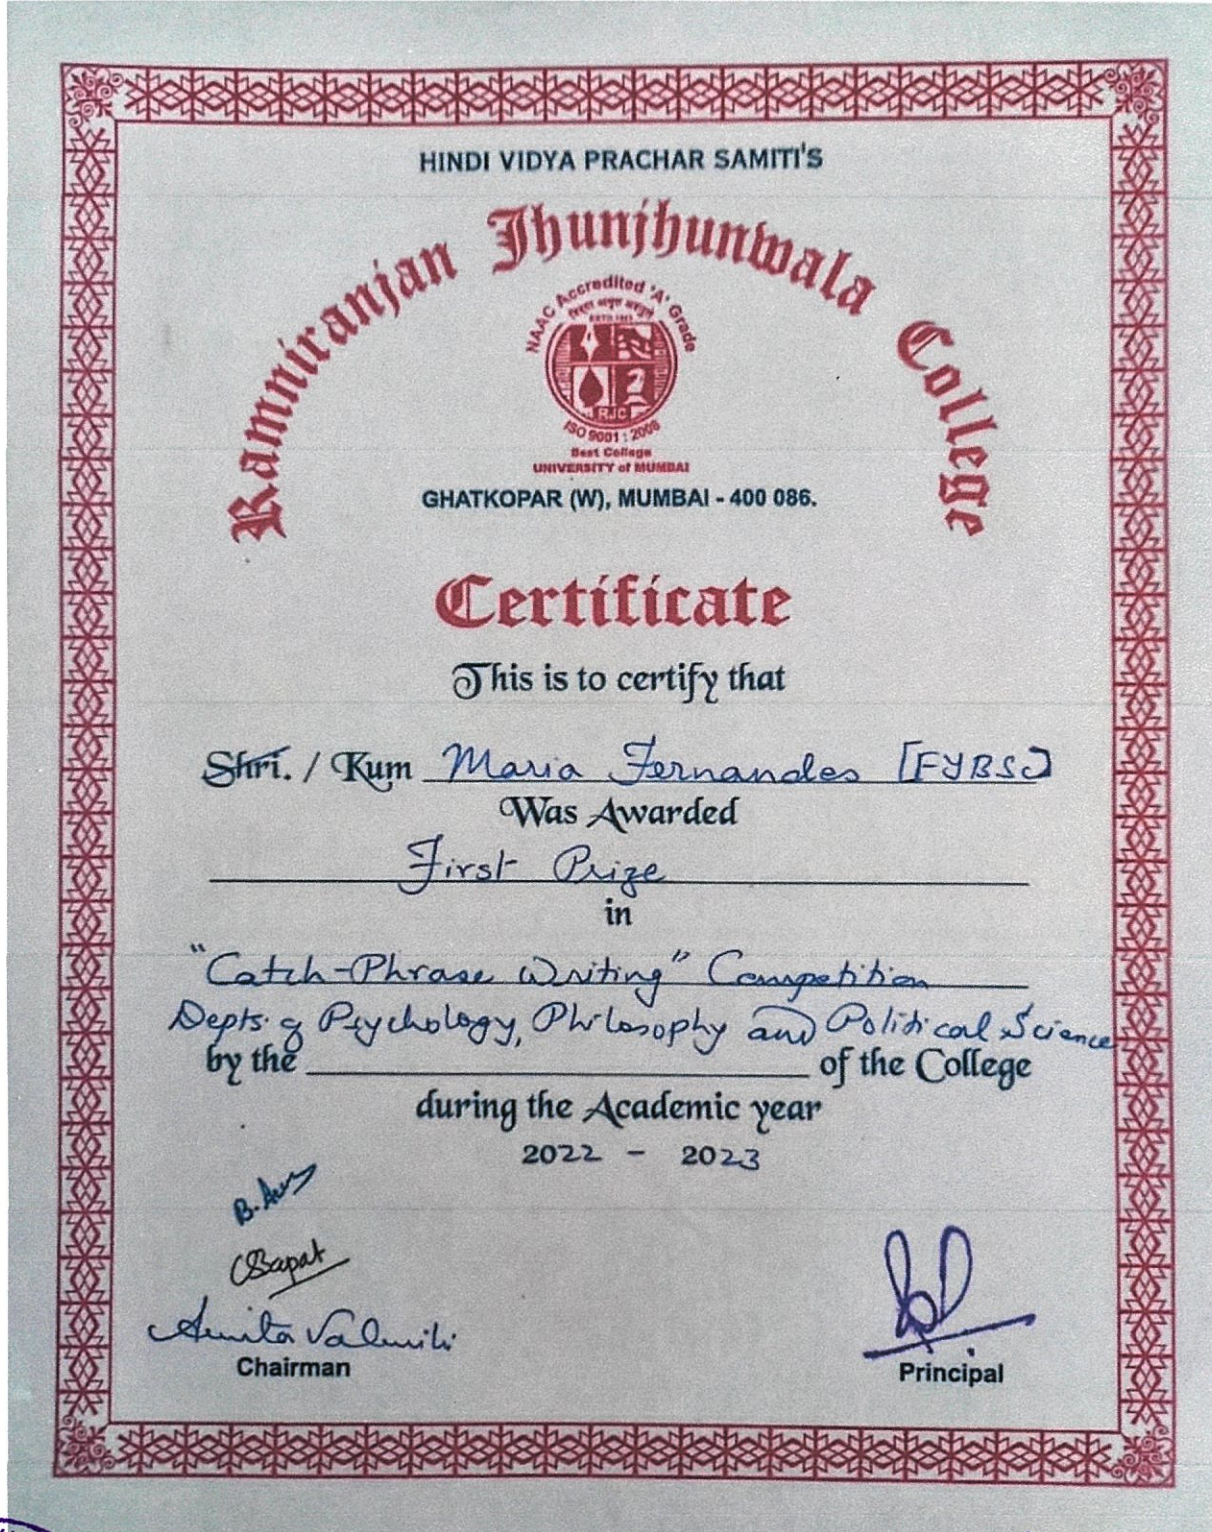 HINDI VIDYA PRACHAR SAMITI'S
Ramniranjan Jhunjhunwala College
NAAC Accredited 'A' Grade
ESTD. 1963
RJC
ISO 9001 : 2008
Best College
UNIVERSITY of MUMBAI
GHATKOPAR (W), MUMBAI - 400 086.
Certificate
This is to certify that
Shri. / Kum Maria Fernandes [FYBSC]
Was Awarded
First Prize
in
"Catch-Phrase Writing" Competition
Depts. of Psychology, Philosophy and Political Science
by the of the College
during the Academic year
2022 - 2023
CSBapat
Amita Valmiki
Chairman
Principal